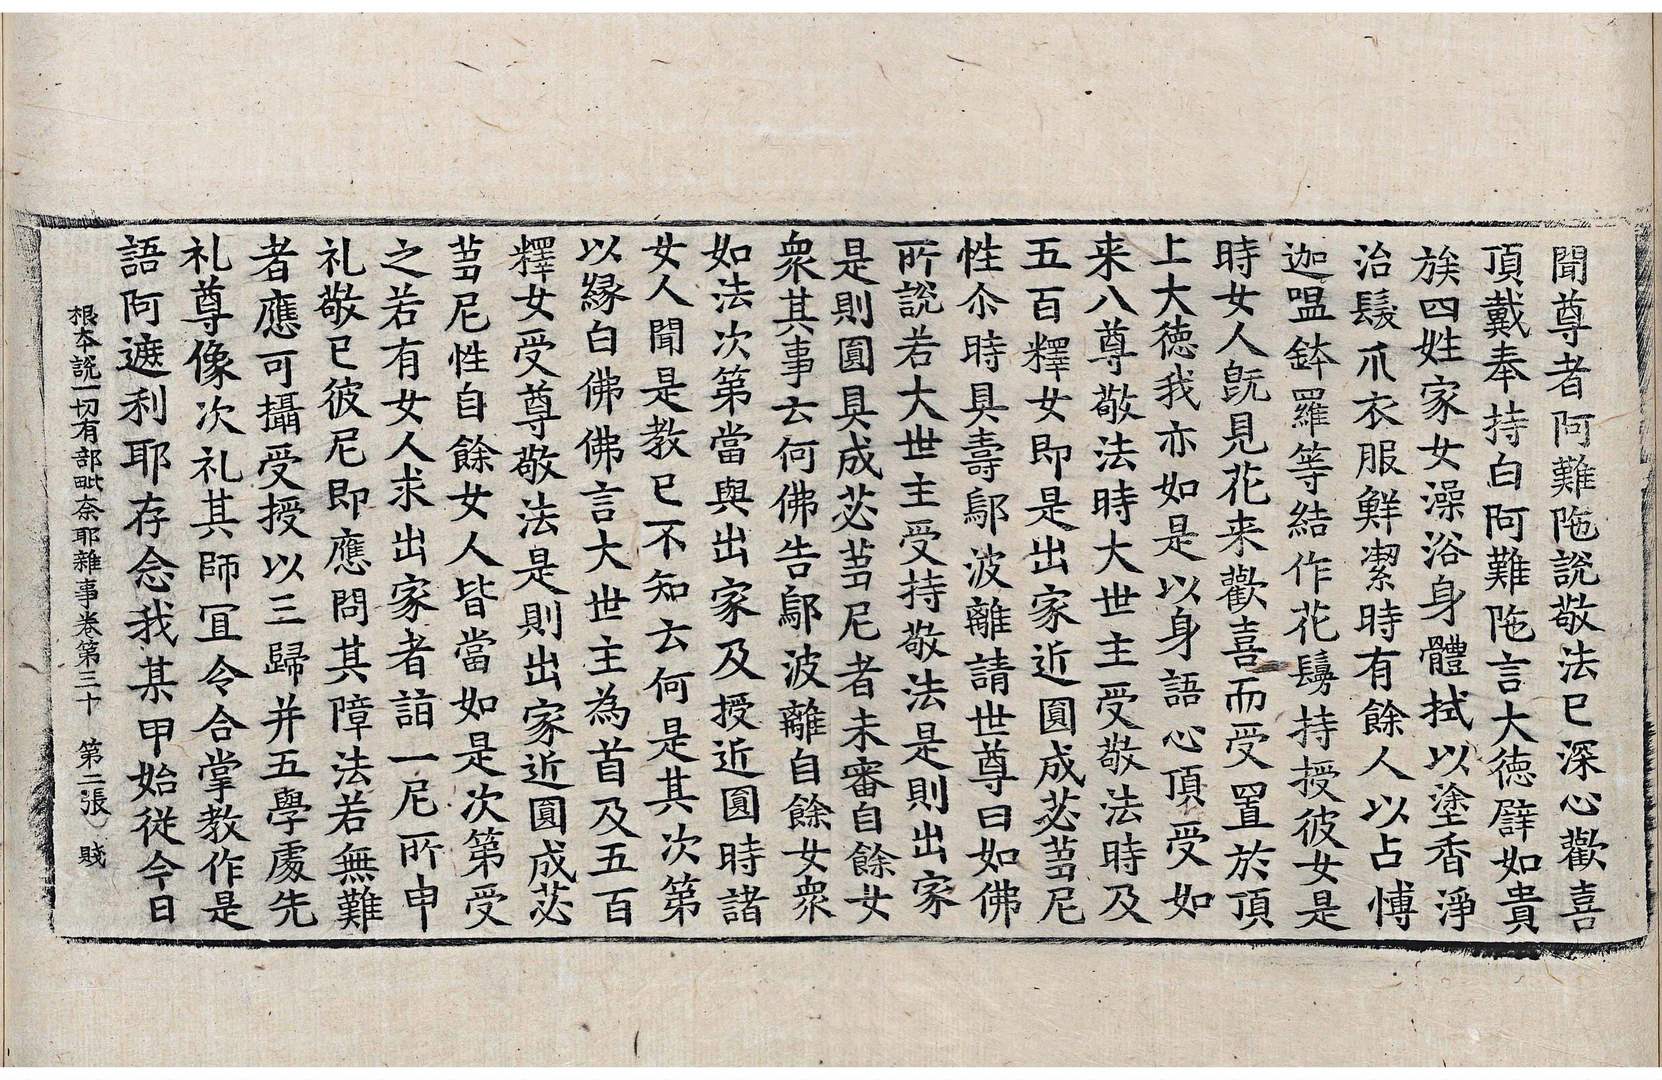 聞尊者阿難陁說敬法已深心歡喜
頂戴奉持白阿難陁言大徳譬如貴
族四姓家女澡浴身體拭以塗香淨
治髮爪衣服鮮潔時有餘人以占博
迦嗢鉢羅等結作花鬘持授彼女是
時女人旣見花来歡喜而受置於頂
上大徳我亦如是以身語心頂受如
来八尊敬法時大世主受敬法時及
五百釋女即是出家近圓成苾芻尼
性尒時具壽鄔波離請世尊曰如佛
所說若大世主受持敬法是則出家
是則圓具成苾芻尼者未審自餘女
衆其事云何佛告鄔波離自餘女衆
如法次第當與出家及授近圓時諸
女人聞是教已不知云何是其次第
以縁白佛佛言大世主為首及五百
釋女受尊敬法是則出家近圓成苾
芻尼性自餘女人皆當如是次第受
之若有女人求出家者詣一尼所申
礼敬已彼尼即應問其障法若無難
者應可攝受授以三歸并五學處先
礼尊像次礼其師冝令合掌教作是
語阿遮利耶存念我某甲始從今日
根本說一切有部毗奈耶雜事卷第三十 第二張 賤